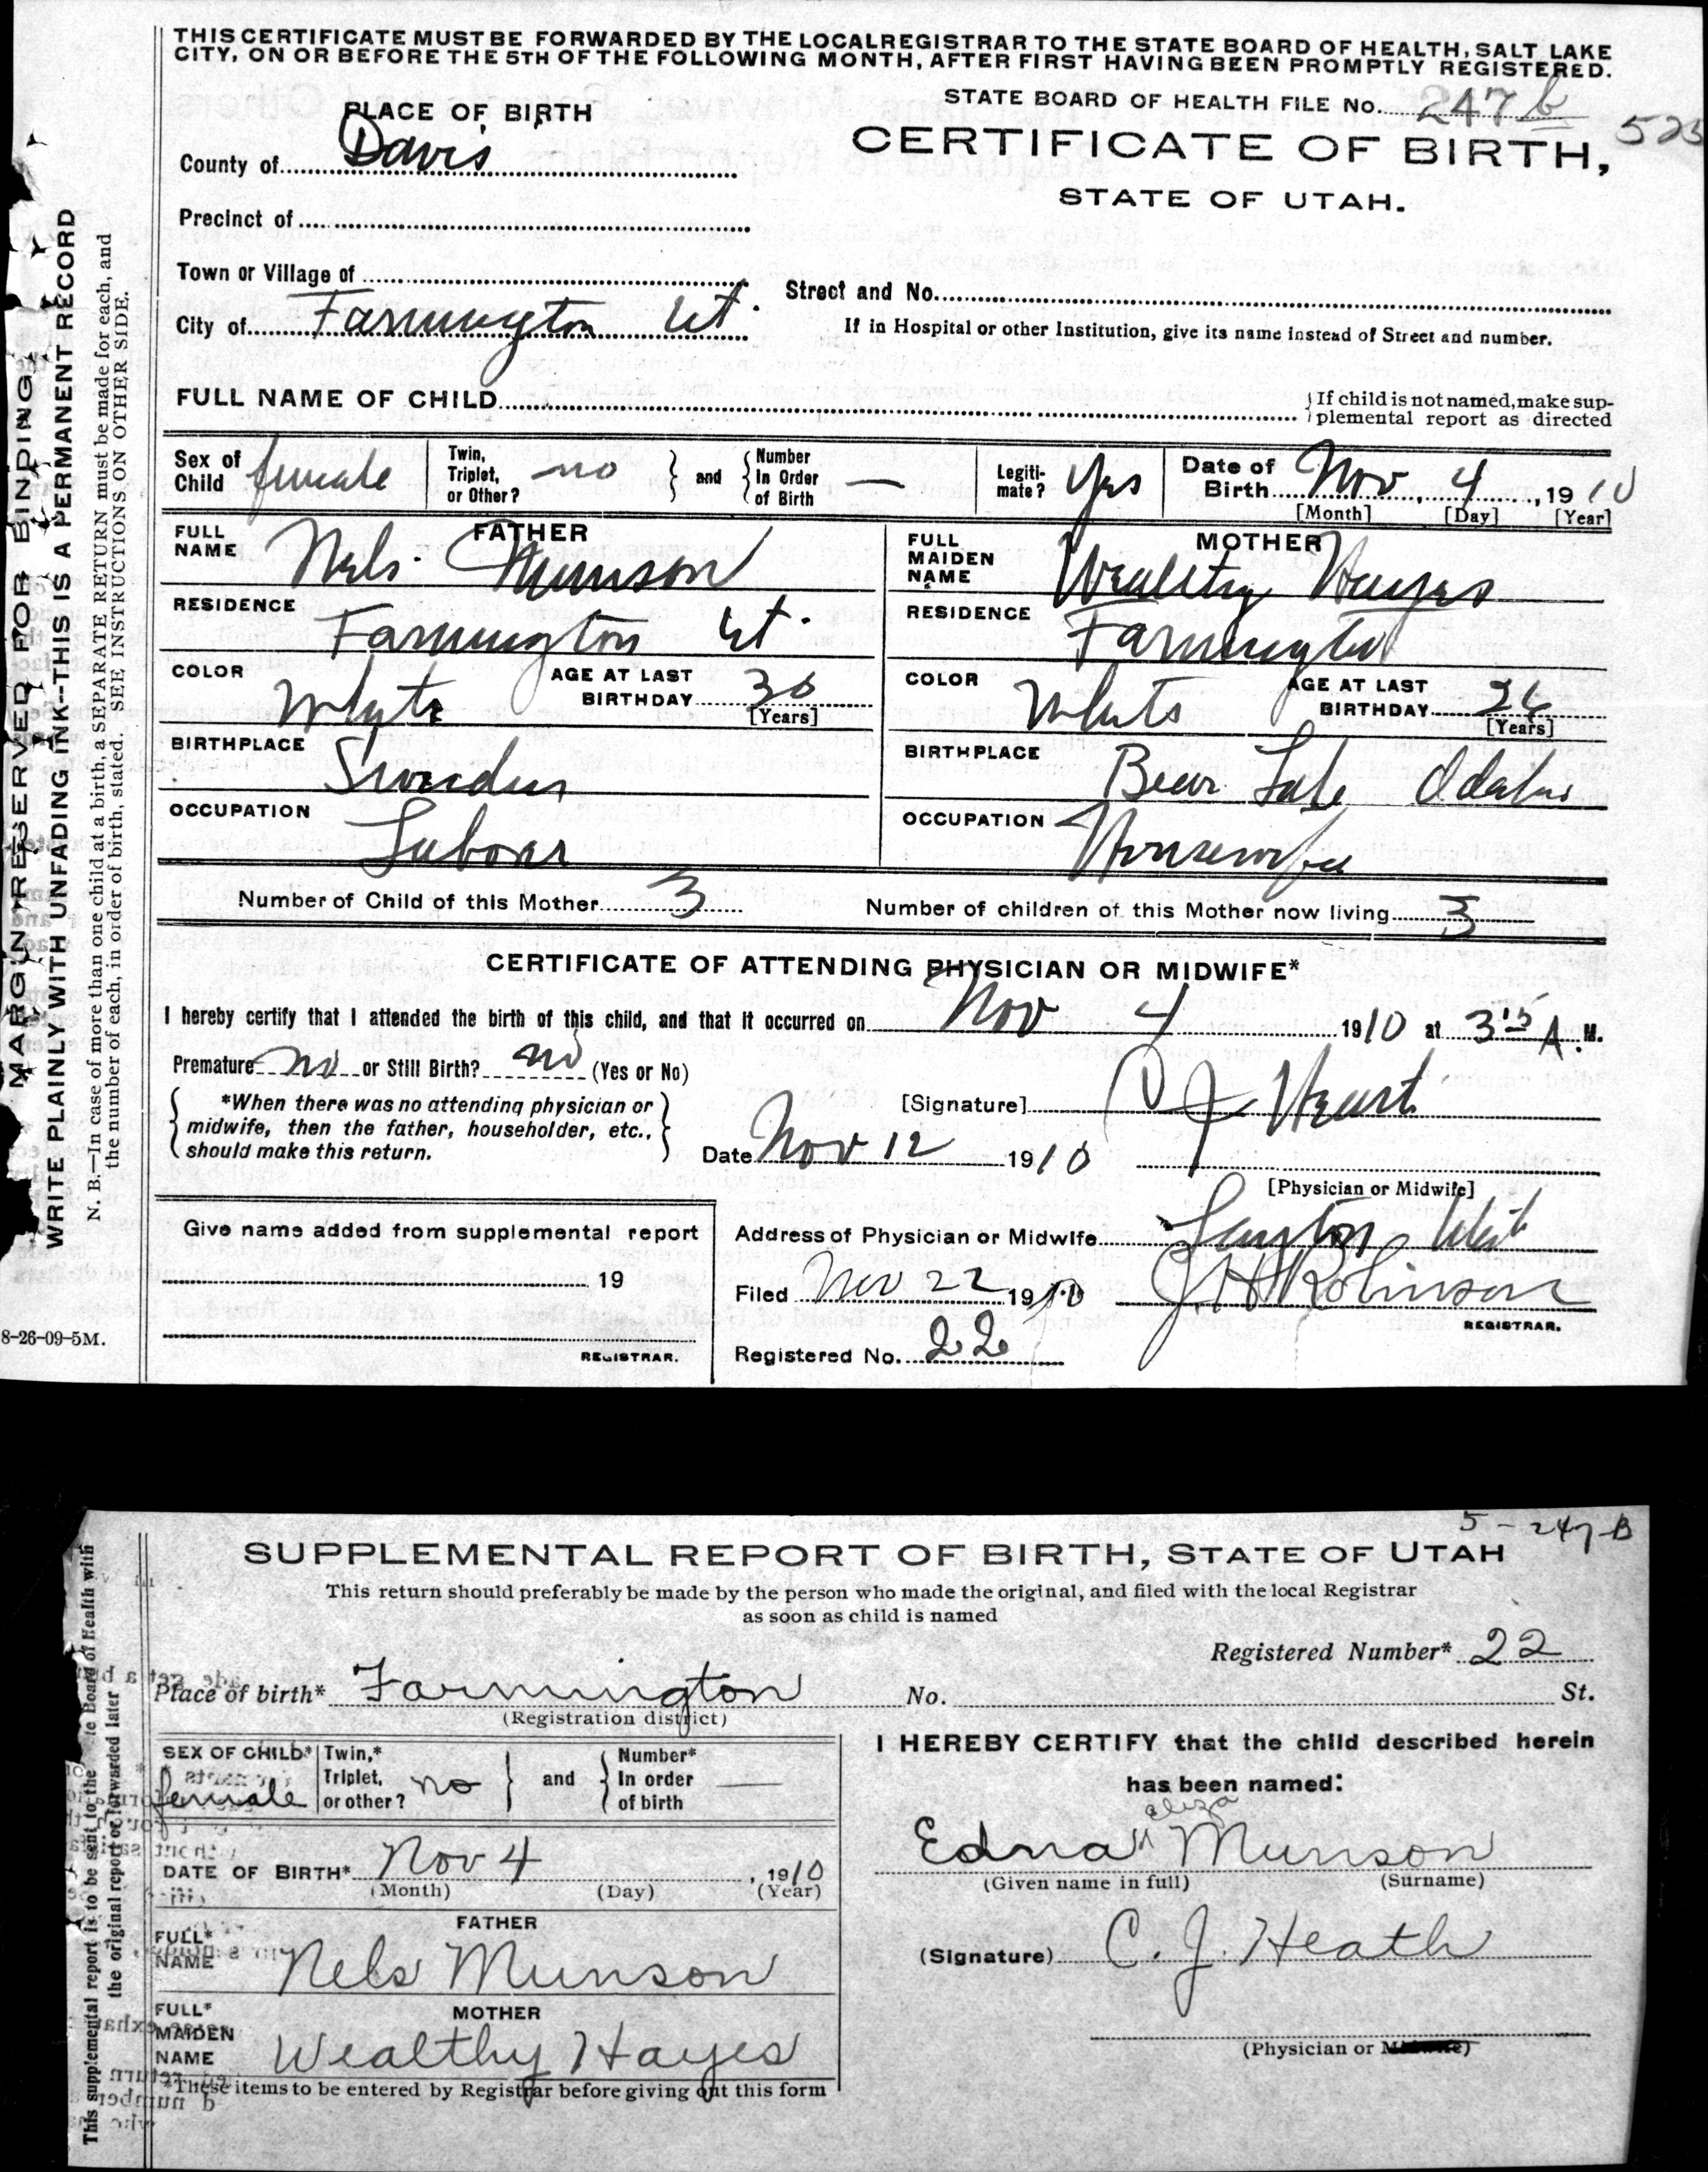 THIS CERTIFICATE MUST BE FORWARDED BY THE LOCAL REGISTRAR TO THE STATE BOARD OF HEALTH, SALT LAKE
CITY, ON OR BEFORE THE 5TH OF THE FOLLOWING MONTH, AFTER FIRST HAVING BEEN PROMPTLY REGISTERED.
STATE BOARD OF HEALTH FILE No. 247 b
523
CERTIFICATE OF BIRTH,
STATE OF UTAH.
PLACE OF BIRTH
County of Davis
Precinct of
Town or Village of
City of Farmington Ut.
Street and No.
If in Hospital or other Institution, give its name instead of Street and number.
FULL NAME OF CHILD
If child is not named, make sup-
plemental report as directed
Sex of Child female
Twin, Triplet, or Other? no
and
Number In Order of Birth —
Legiti-mate? Yes
Date of Birth Nov. 4, 1910
[Month] [Day] [Year]
FATHER
FULL NAME Nels. Munson
RESIDENCE Farmington Ut.
COLOR Whyte
AGE AT LAST BIRTHDAY 30
[Years]
BIRTHPLACE Sweeden
OCCUPATION Laborer
MOTHER
FULL MAIDEN NAME Wealthy Hayes
RESIDENCE Farmington
COLOR White
AGE AT LAST BIRTHDAY 26
[Years]
BIRTHPLACE Bear Lake Idaho
OCCUPATION Housewife
Number of Child of this Mother 3
Number of children of this Mother now living 3
CERTIFICATE OF ATTENDING PHYSICIAN OR MIDWIFE*
I hereby certify that I attended the birth of this child, and that it occurred on Nov 4 1910 at 3 15 A. M.
Premature no or Still Birth? no (Yes or No)
*When there was no attending physician or
midwife, then the father, householder, etc.,
should make this return.
[Signature] C J Heath
Date Nov 12 1910
[Physician or Midwife]
Give name added from supplemental report
19
REGISTRAR.
Address of Physician or Midwife Layton Utah
Filed Nov 22 1910 J. H. Robinson
REGISTRAR.
Registered No. 22
8-26-09-5M.
MARGIN RESERVED FOR BINDING
WRITE PLAINLY WITH UNFADING INK--THIS IS A PERMANENT RECORD
N. B.—In case of more than one child at a birth, a SEPARATE RETURN must be made for each, and
the number of each, in order of birth, stated. SEE INSTRUCTIONS ON OTHER SIDE.
5-247-B
SUPPLEMENTAL REPORT OF BIRTH, STATE OF UTAH
This return should preferably be made by the person who made the original, and filed with the local Registrar
as soon as child is named
Registered Number* 22
Place of birth* Farmington No. St.
(Registration district)
SEX OF CHILD* female
Twin,* Triplet, or other? no
and
Number* In order of birth —
DATE OF BIRTH* Nov 4, 1910
(Month) (Day) (Year)
FATHER
FULL* NAME Nels Munson
MOTHER
FULL* MAIDEN NAME Wealthy Hayes
*These items to be entered by Registrar before giving out this form
I HEREBY CERTIFY that the child described herein
has been named:
eliza
Edna Munson
(Given name in full) (Surname)
(Signature) C. J. Heath
(Physician or Midwife)
This supplemental report is to be sent to the te Board of Health with
the original report or forwarded later